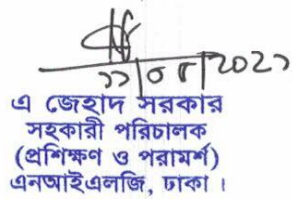 ১১/০৫/2021
এ জেহাদ সরকার
সহকারী পরিচালক
(প্রশিক্ষণ ও পরামর্শ)
এনআইএলজি, ঢাকা।